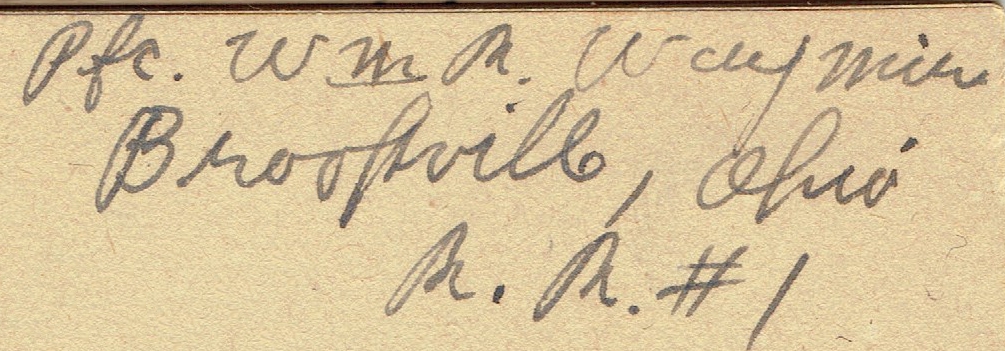 Pfc. Wm R. Waymire
Brookville, Ohio
R. R. #1